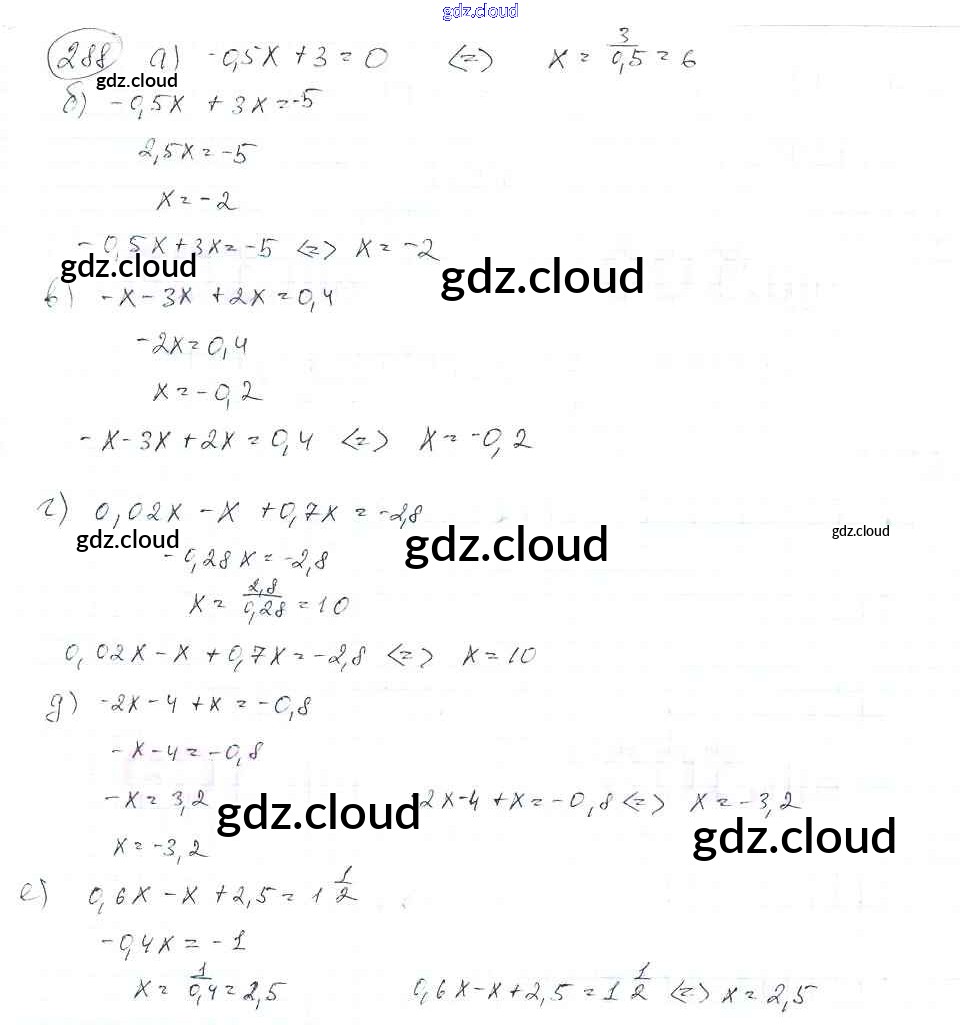 gdz.cloud
288 а) -0,5x + 3 = 0 <=> x = 3/0,5 = 6
gdz.cloud
б) -0,5x + 3x = -5
2,5x = -5
x = -2
-0,5x + 3x = -5 <=> x = -2
gdz.cloud
gdz.cloud
в) -x - 3x + 2x = 0,4
-2x = 0,4
x = -0,2
-x - 3x + 2x = 0,4 <=> x = -0,2
г) 0,02x - x + 0,7x = -2,8
gdz.cloud
gdz.cloud
gdz.cloud
-0,28x = -2,8
x = 2,8/0,28 = 10
0,02x - x + 0,7x = -2,8 <=> x = 10
д) -2x - 4 + x = -0,8
-x - 4 = -0,8
-x = 3,2
gdz.cloud
2x - 4 + x = -0,8 <=> x = -3,2
gdz.cloud
x = -3,2
е) 0,6x - x + 2,5 = 1 1/2
-0,4x = -1
x = 1/0,4 = 2,5
0,6x - x + 2,5 = 1 1/2 <=> x = 2,5